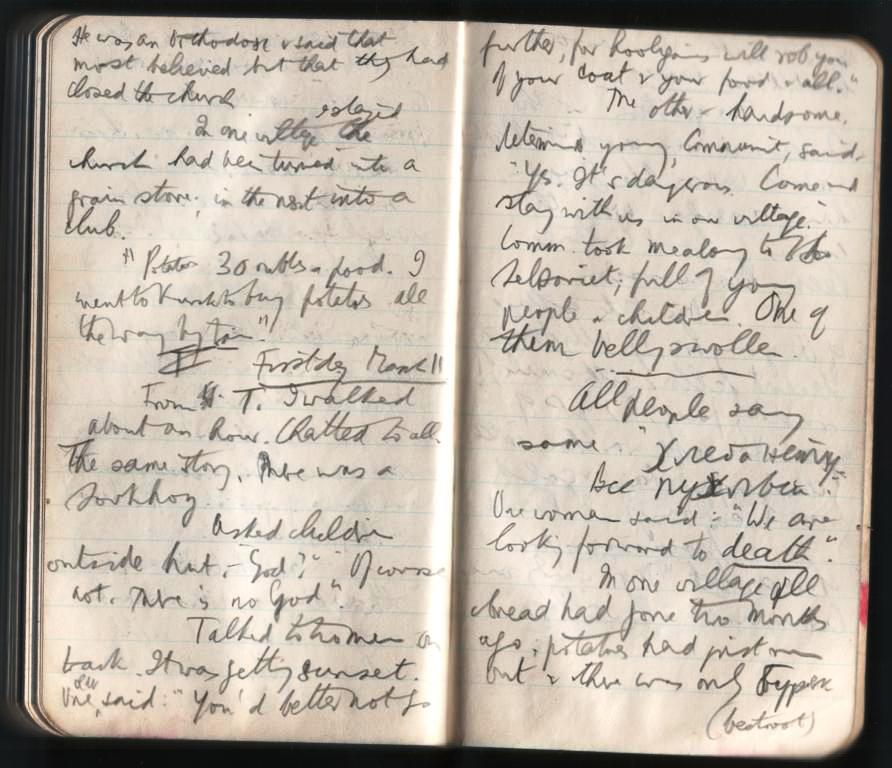 He was an Orthodox & said that
most believed but that they had
closed the church
In one village the
church had been turned into a
grain store, in the next into a
club.
"Potatoes 30 roubles a pood. I
went to Kursk to buy potatoes all
the way by train."
First day March 11
From T. I walked
about an hour. Chatted to all.
The same story. There was a
Sovkhoz
Asked children
outside hut, - "God?" "Of course
not. There is no God".
Talked to two men on
track. It was getting sunset.
One said: "You'd better not go
further, for hooligans will rob you
of your coat & your food & all."
The other - handsome,
young Communist, said,
"Yes. It's dangerous. Come and
stay with us in our village."
Comm. took me along to the
Selsoviet, full of young
people & children. One of
them belly swollen.
All people say
same. "Хлеба нету
Все пухлые."
One woman said: - "We are
looking forward to death".
In one village all
bread had gone two months
ago, potatoes had just run
out & there was only Буряк
(beetroot)